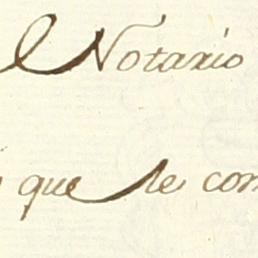 Notario
que le con